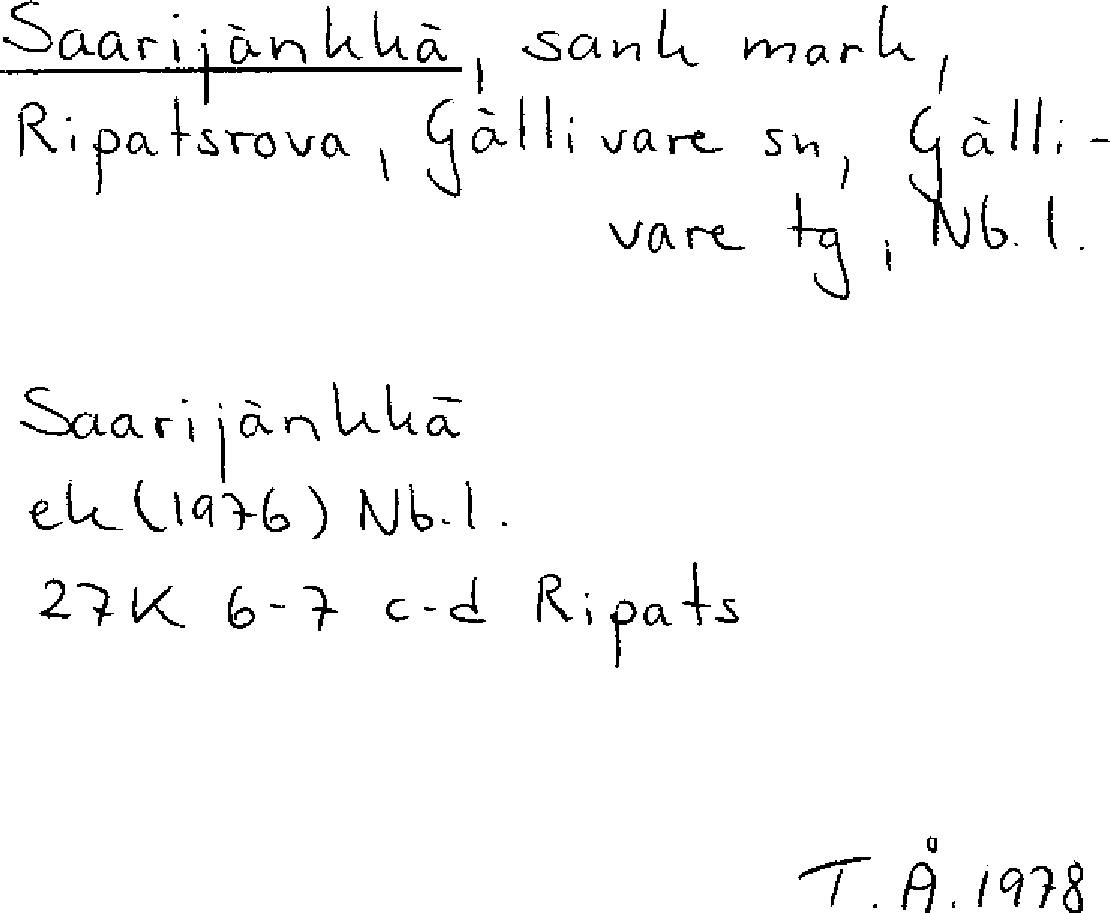 Saarijänkkä, sank mark,
Ripatsrova, Gällivare sn, Gälli-
vare tg, Nb. l.
Saarijänkkä
ek (1976) Nb. l.
27K 6-7 c-d Ripats
T. Å. 1978